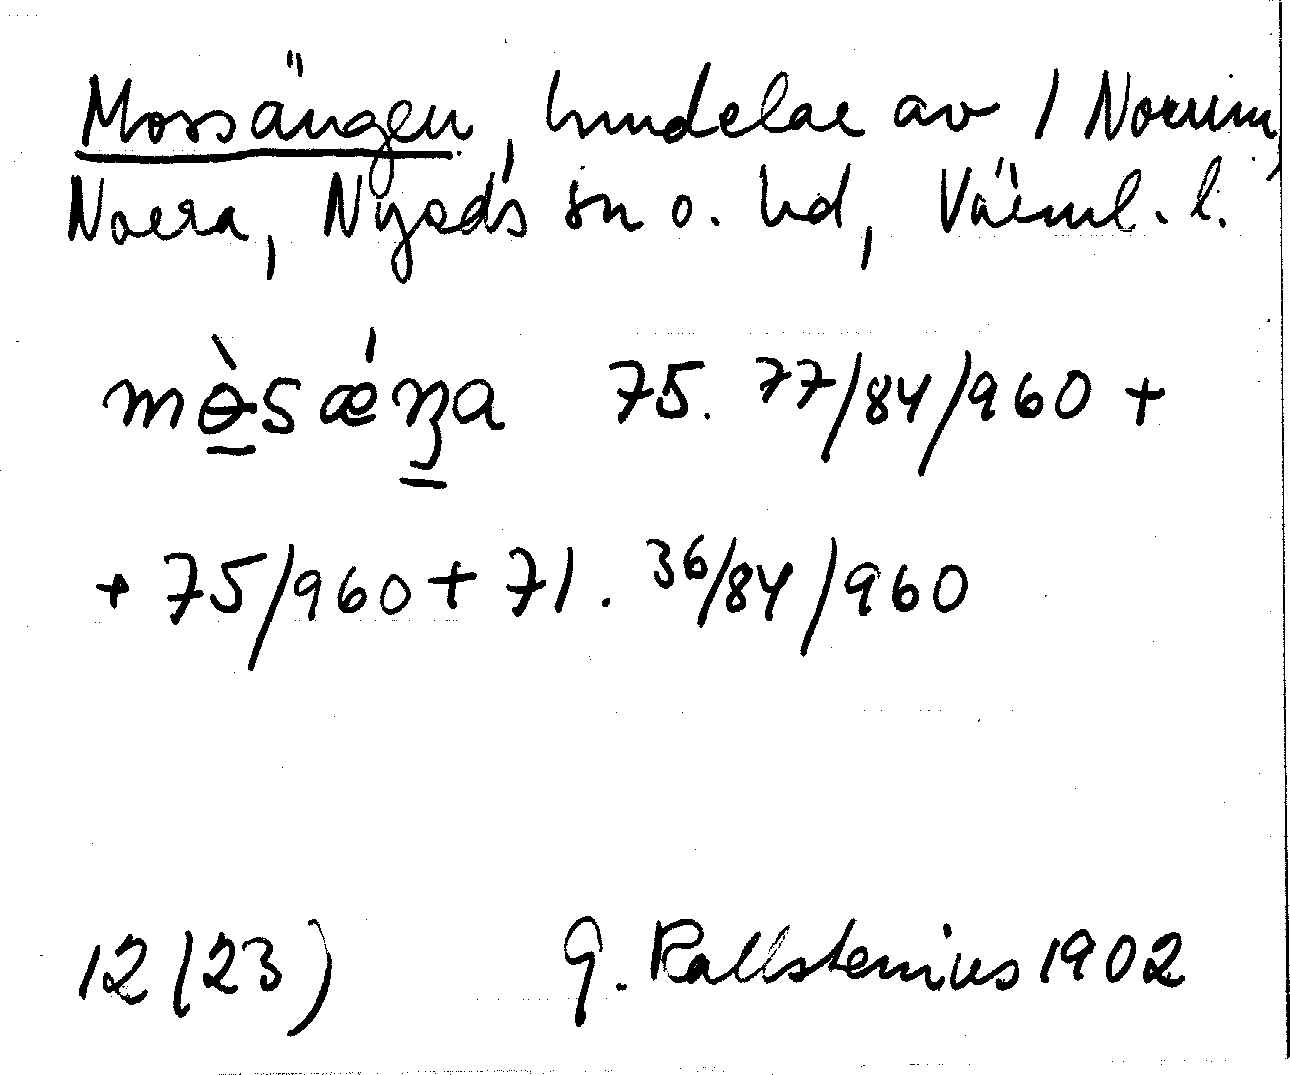 Mossängen, hmdelar av 1 Norum,
Norra, Nyeds sn o. hd, Värml. l.
mɵ̀sǽŋa 75. 77/84/960 +
+ 75/960 + 71. 36/84/960
12(23) G. Kallstenius 1902